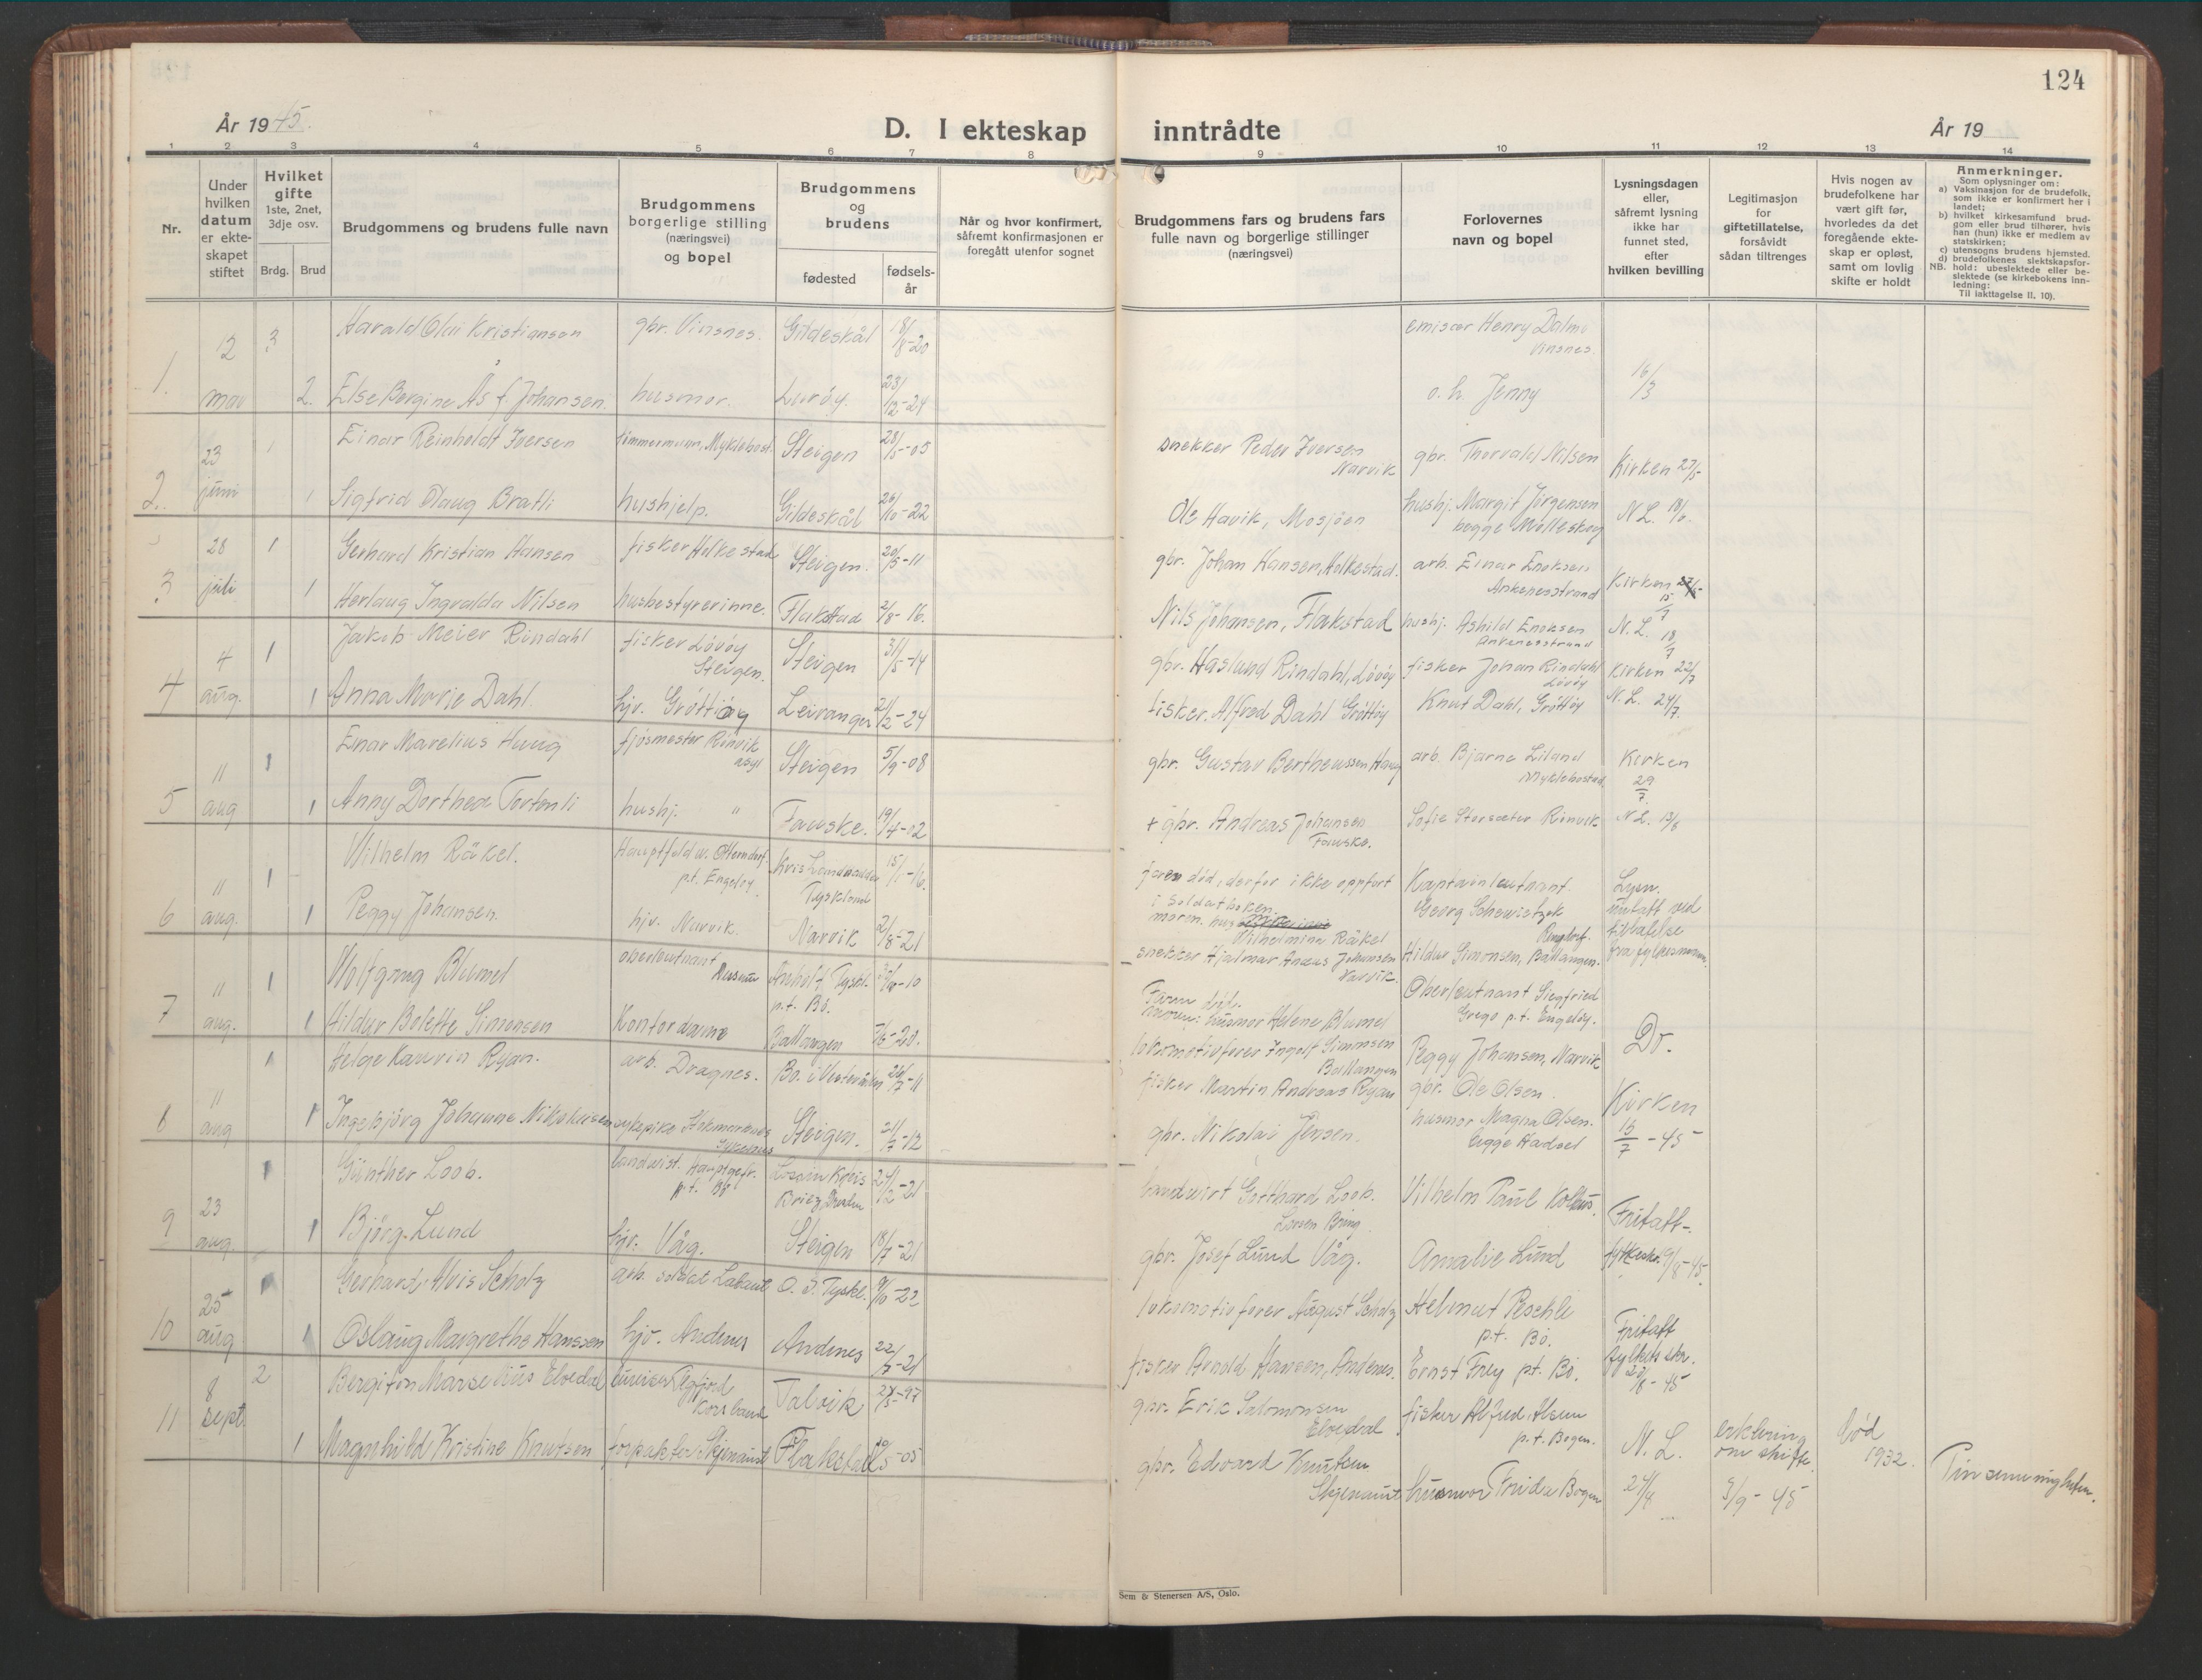 124
År 1945.
D. I ekteskap inntrådte
År 19
1 2 3 4 5 6 7 8 9 10 11 12 13 14
Nr.
Under hvilken datum er ekteskapet stiftet
Hvilket gifte 1ste, 2net, 3dje osv.
Brdg. Brud
Brudgommens og brudens fulle navn
Brudgommens borgerlige stilling (næringsvei) og bopel
Brudgommens og brudens
fødested
fødsels-år
Når og hvor konfirmert, såfremt konfirmasjonen er foregått utenfor sognet
Brudgommens fars og brudens fars fulle navn og borgerlige stillinger (næringsvei)
Forlovernes navn og bopel
Lysningsdagen eller, såfremt lysning ikke har funnet sted, efter hvilken bevilling
Legitimasjon for giftetillatelse, forsåvidt sådan tiltrenges
Hvis nogen av brudefolkene har vært gift før, hvorledes da det foregående ekteskap er opløst, samt om lovlig skifte er holdt
Anmerkninger.
Som oplysninger om:
a) Vaksinasjon for de brudefolk, som ikke er konfirmert her i landet;
b) hvilket kirkesamfund brudgom eller brud tilhører, hvis han (hun) ikke er medlem av statskirken;
c) utensogns brudens hjemsted.
d) brudefolkenes slektskapsforhold: ubeslektede eller beslektede (se kirkebokens innledning:
NB.
Til iakttagelse II, 10).
1. 12 mai 3 Harald Olai Kristiansen gbr. Vinsnes. Gildeskål 18/8-20 emisær Henry Dalmo Vinsnes.
2. Else Bergine Ås f. Johansen. husmor. Lurøy. 23/12-24 o. h. Jenny 16/3
2. 23 juni 1 Einar Reinholdt Iversen tømmermann, Myklebost. Steigen 28/5-05 snekker Peder Iversen Narvik gbr. Thorvald Nilsen Kirken 27/5
1 Sigfrid Olaug Bratli hushjelp. Gildeskål 26/10-22 Ole Havik, Mosjøen hushj. Margit Jørgensen begge Mølleskog N L. 18/6.
3 28 juli 1 Gerhard Kristian Hansen fisker Holkestad Steigen. 20/5-11 gbr. Johan Hansen, Holkestad. arb. Einar Enoksen Ankenesstrand Kirken 15/7
1 Herlaug Ingvalda Nilsen husbestyrerinne. Flakstad 2/8-16. Nils Johansen, Flakstad hushj. Åshild Enoksen Ankenesstrand N. L. 18/7
4 4 aug. 1 Jakob Meier Rindahl fisker Løvøy Steigen. Steigen 31/5-14 gbr. Haslund Rindahl, Løvøy fisker Johan Rindahl Løvøy Kirken 22/7
1 Anna Marie Dahl. hjv. Grøttøy Leiranger 21/2-24 fisker. Alfred Dahl Grøttøy Knut Dahl, Grøttøy N. L. 24/7.
5 11 aug 1 Einar Marelius Haug fjøsmester Rønvik asyl Steigen 5/9-08 gbr. Gustav Bertheussen Haug arb. Bjarne Liland Myklebostad. Kirken 29/7.
1 Anny Dorthea Tortenli hushj. " Fauske. 19/4-02 + gbr. Andreas Johansen Fauske. Sofie Storsæter Rønvik N L. 13/8
6 11 aug. 1 Wilhelm Räkel. Hauptfeldw. Otterndorf. p.t. Engeløy. Tyskland 15/1-16. faren død, derfor ikke oppført i soldatboken. moren. Wilhelmina Räkel Kaptainleutnant. Georg Schewietzek
1 Peggy Johansen. hjv. Narvik. Narvik 2/8-21 snekker Hjalmar Andeas Johansen Narvik. Hildur Simonsen, Ballangen. Lysn. untatt ved tillatelse fra fylkesmannen.
7 11 aug. 1 Wolfgang Blumel oberleutnant Anholt, Tyskl. p.t. Bø. Faren død. moren: husmor Helene Blumel Oberleutnant Siegfried Grego p.t. Engeløy.
1 Hildur Bolette Simonsen Kontordame Ballangen lokomotivfører Ingolf Simonsen Ballangen Peggy Johansen, Narvik Do.
8 11 aug 1 Helge Kaurin Ryan. arb. Dragnes. Bø. i Vesterålen 26/7-11 fisker Martin Andreas Ryan gbr. Ole Olsen. Kirken
1 Ingebjørg Johanne Nikolaisen sykepike Stokmarknes Sykehus Steigen. gbr. Nikolai Jensen. husmor Magna Olsen. begge Hadsel 15/7-45
9 23 aug. 1 Günther Loob. landwirt. Hauptgefr. p.t. Bø Lossen Kreis Brieg 24/2-21 landwirt Gotthard Loob. Lossen Brieg Vilhelm Paul Fritatt-
1 Bjørg Lund hjv. Våg. Steigen 18/7-21 gbr. Josef Lund Våg. Amalie Lund fylkeskr. 9/8-45.
10 25 aug 1 Gerhard Alvis Scholz arb. soldat O. S. Tyskl. 9/10-22 lokomotivfører August Scholz Helmut Peschke p.t. Bø. Fritatt
1 Oslaug Margrethe Hanssen hjv. Andenes Andenes 22/7-21 fisker Arnold Hansen, Andenes. Ernst Frey pt. Bø. fylkets skr. 20/8-45
11 8 sept 2 Bergiton Marselius Elvedal Talvik gbr. Erik Salomonsen Elvedal fisker Alfred Alsen p.t. Bogen. N. L. erklæring om skifte. død 1932.
1 Magnhild Kristine Knutsen forpakter Skjenaust Flakstad gbr. Edvard Knutsen Skjenaust husmor Frida Bogen 21/4 5/9-45 Pinsemenigheten.
Sem & Stenersen A/S, Oslo.